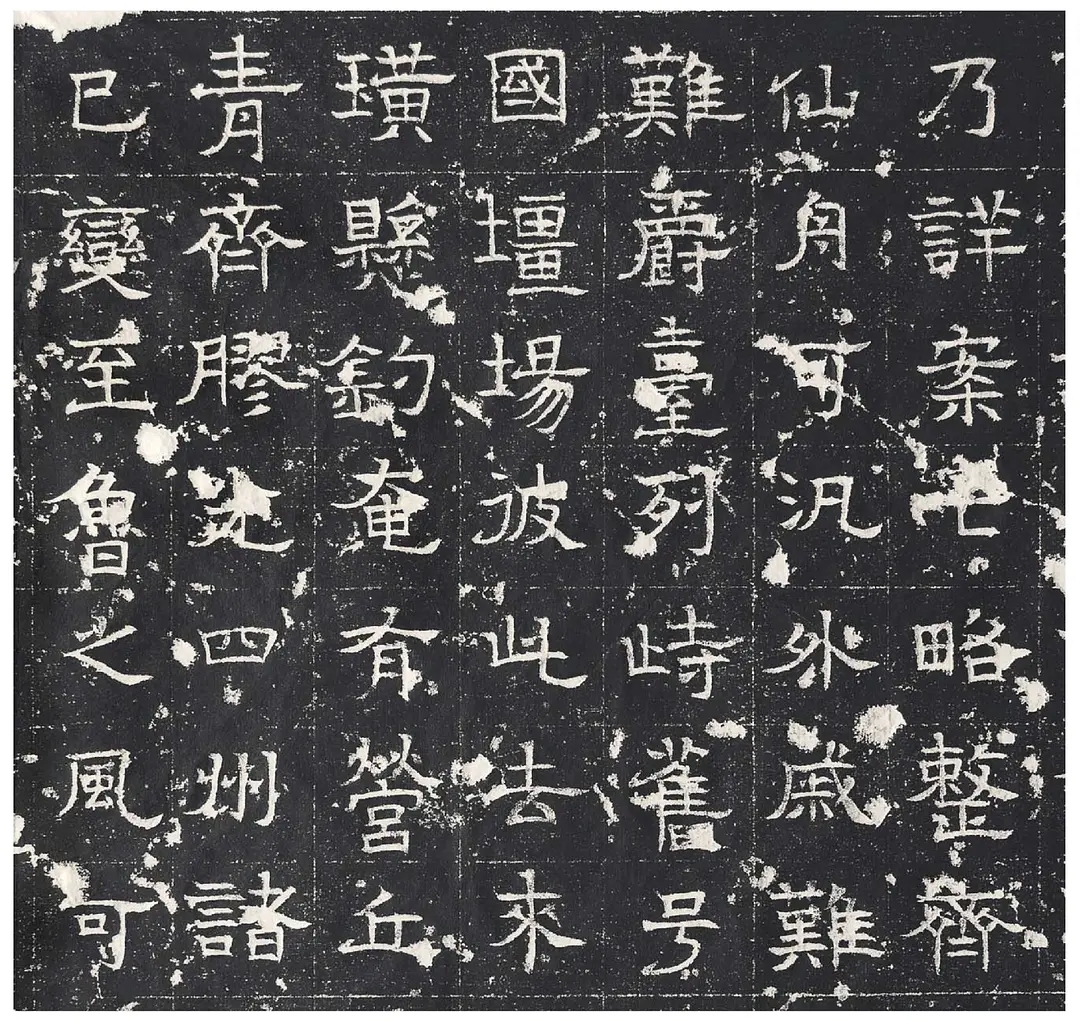 乃詳案七略整齊
仙舟可汎外戚難
難爵臺列峙雀号
國壃場彼此去來
璜懸釣奄有營丘
青齊膠光四州諸
已變至魯之風可